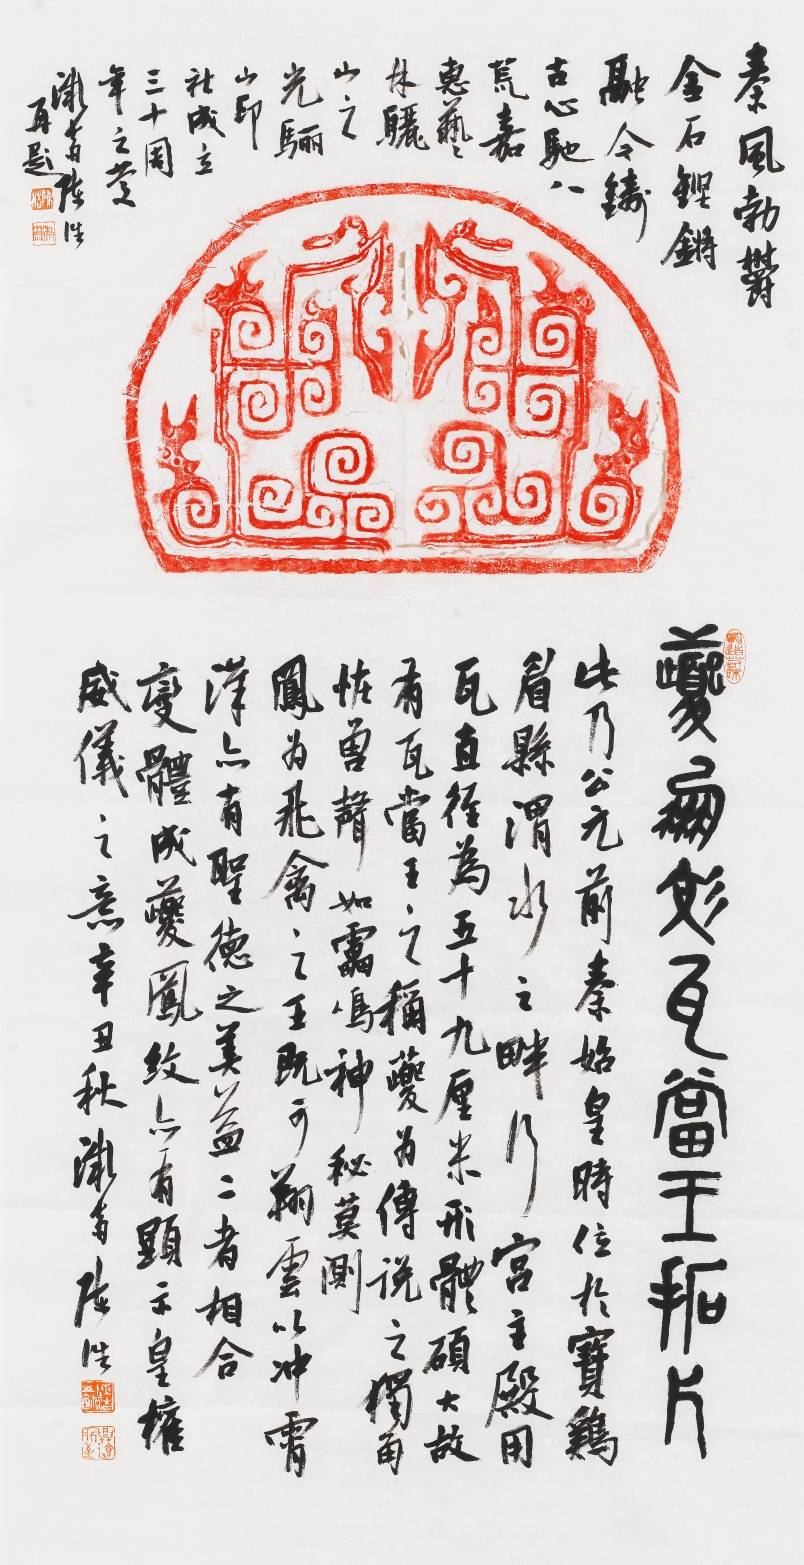 秦風勃鬱
金石鏗鏘
融今鑄
古心馳八
荒嘉
惠藝
林驪
山之
光骊
山印
社成立
三十周
年之慶
陳浩
再題
夔鳳彣瓦當王拓片
此乃公元前秦始皇時位於寶鷄
眉縣渭水之畔行宮主殿用
瓦直徑為五十九厘米形體碩大故
有瓦當王之稱夔为傳説之獨角
怪兽聲如靁鳴神秘莫測
鳳为飛禽之王既可翔雲以冲霄
漢亦有聖德之美益二者相合
變體成夔鳳紋亦有顯示皇權
威儀之意辛丑秋陳浩